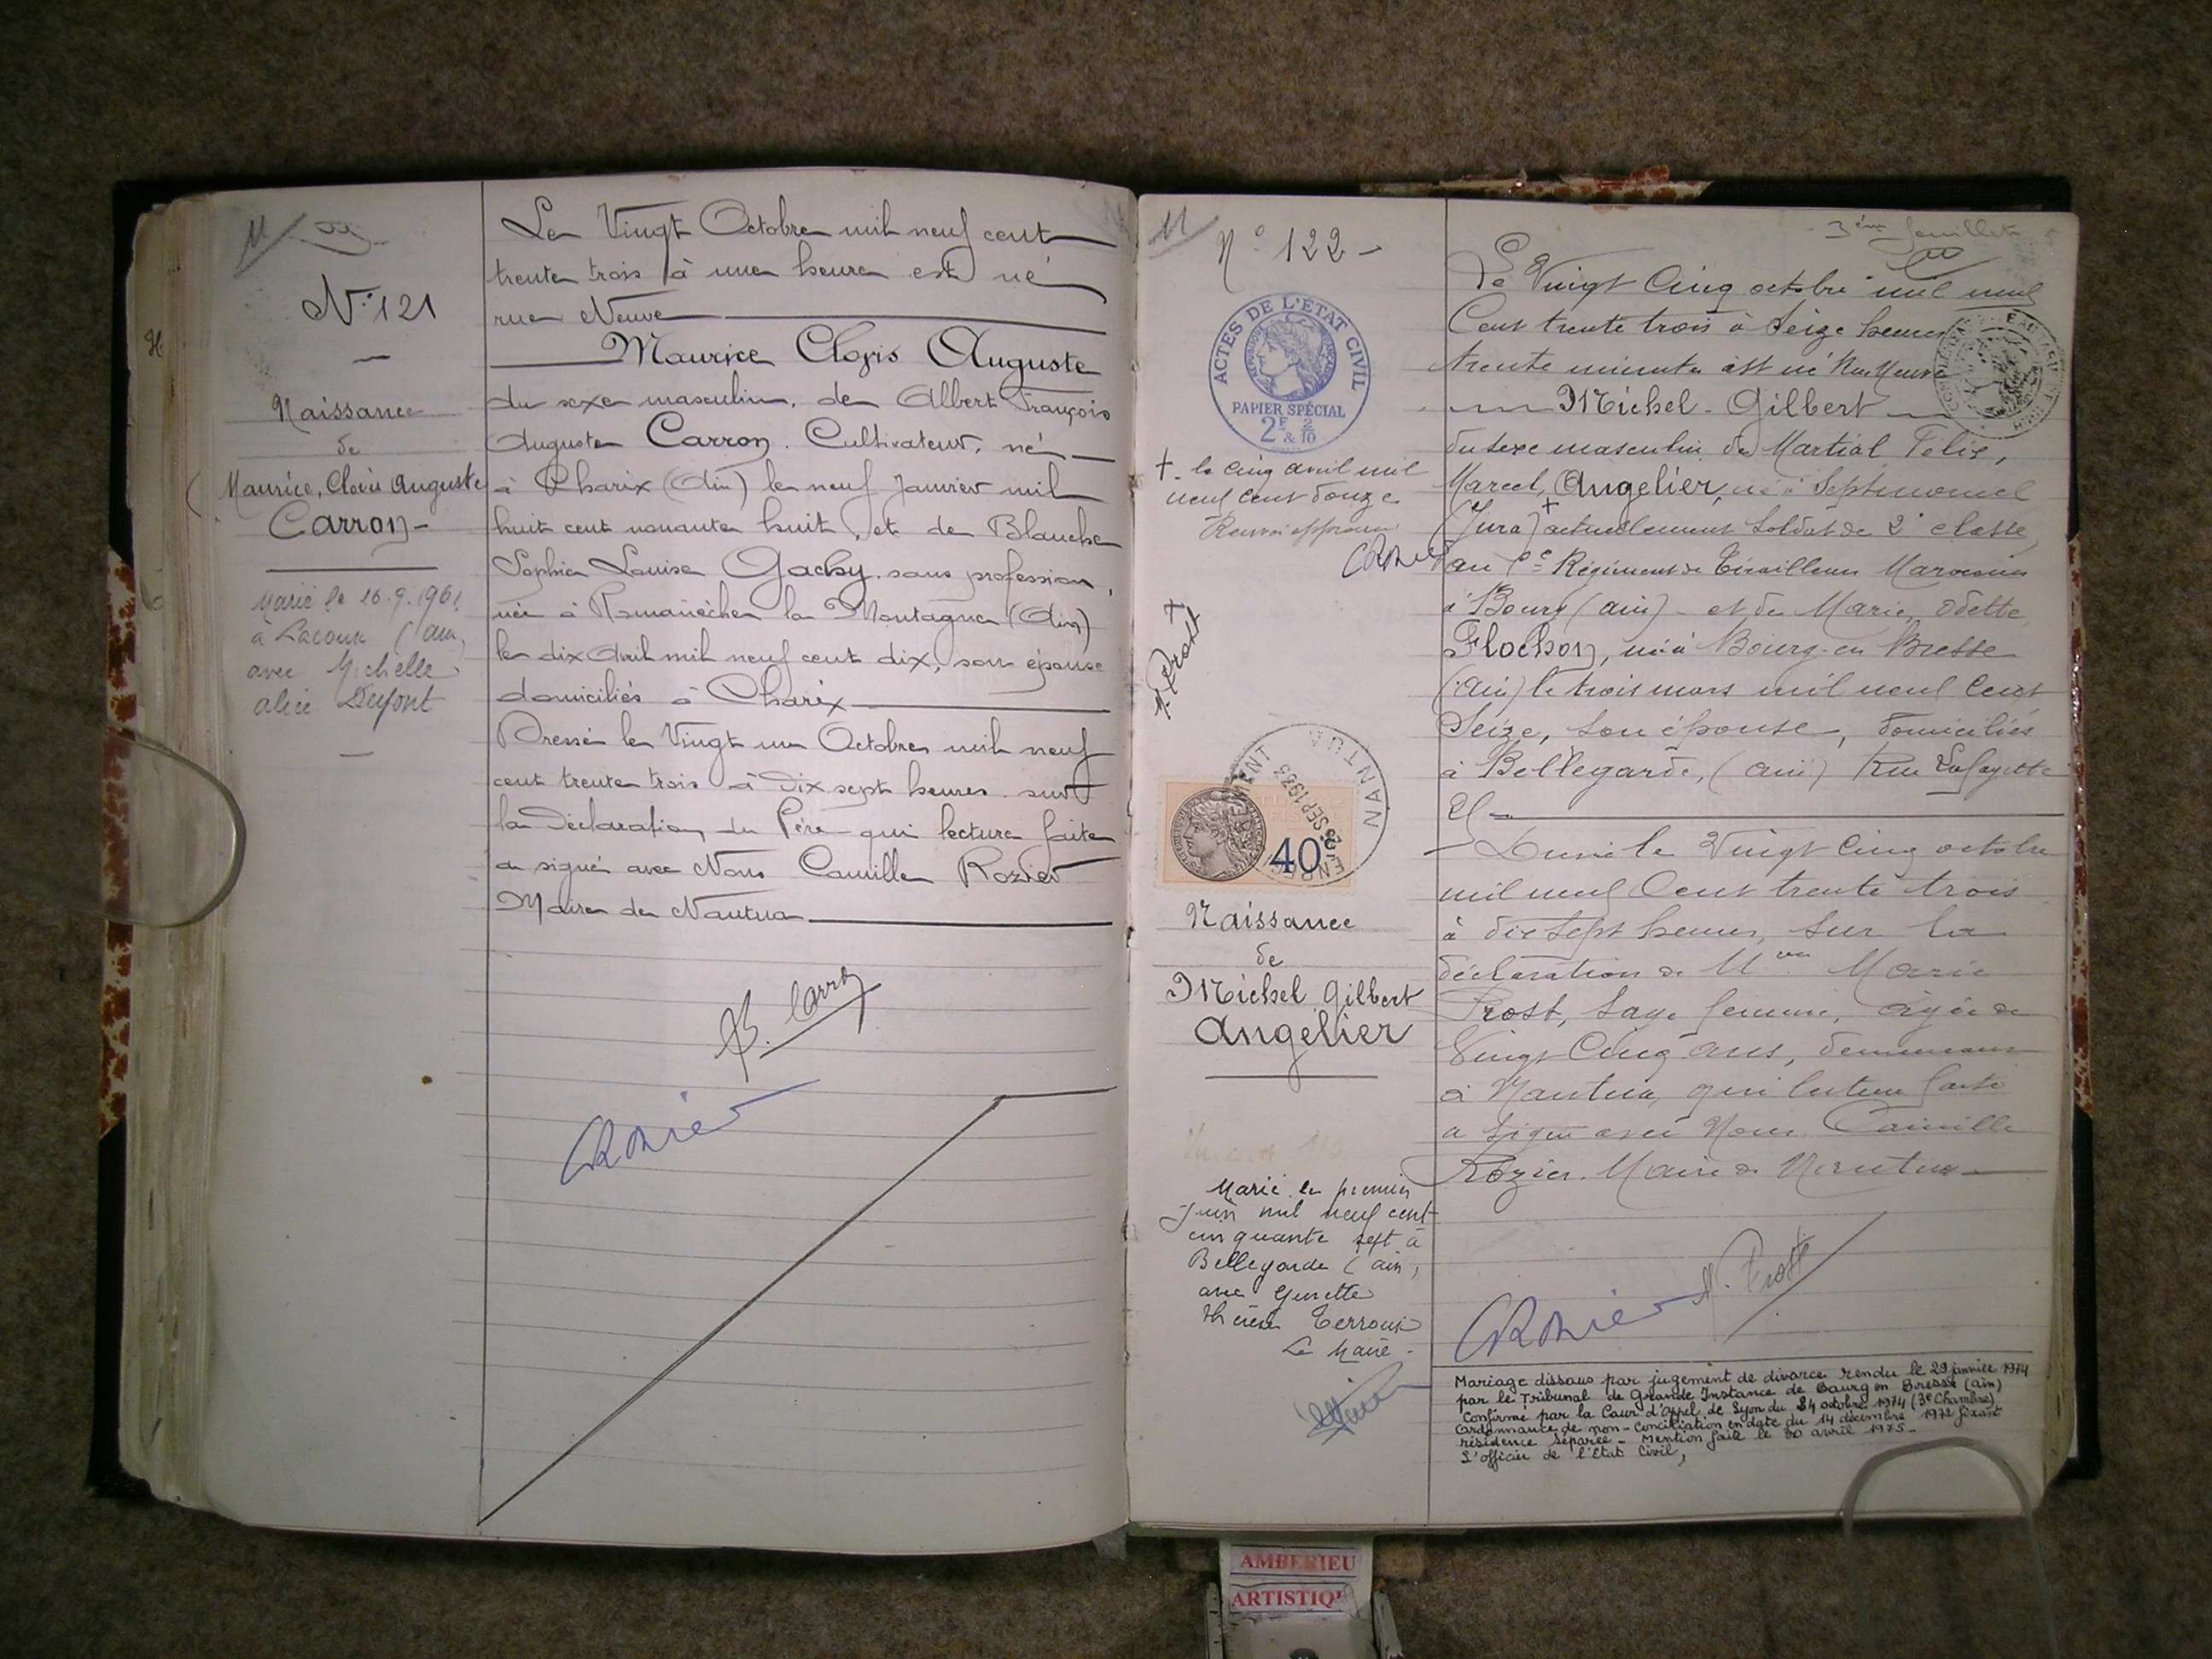 N° 121
Naissance
de
Maurice, Clovis Auguste
Carron
Marié le 16.9.1961
à Lacoux (Ain)
avec Michelle
Alice Dufont
Le Vingt Octobre mil neuf cent
trente trois à une heure est né
rue Neuve
Maurice Clovis Auguste
du sexe masculin, de Albert François
Auguste Carron. Cultivateur, né
à Charix (Ain) le neuf Janvier mil
huit cent nonante huit, et de Blanche
Sophie Louise Gachy, sans profession,
née à Romanèche la Montagne (Ain)
le dix Avril mil neuf cent dix, son épouse
domiciliés à Charix
Dressé le Vingt un Octobre mil neuf
cent trente trois à Dix sept heures sur
la Déclaration du Père qui lecture faite
a signé avec Nous Camille Rozier
Maire de Nantua
A. Carron
CRozier
N° 122
ACTES DE L'ÉTAT CIVIL
PAPIER SPÉCIAL
2F & 2/10
+ le cinq avril mil
neuf cent douze
Renvoi approuvé
CRozier
M. Prost
NANTUA
28 SEP 1933
ENREGISTREMENT
40
Naissance
de
Michel Gilbert
Angelier
Marié le premier
juin mil neuf cent
cinquante sept à
Bellegarde (Ain)
avec Ginette
Thérèse Terroux
Le Maire
3ème feuillet
Le Vingt Cinq octobre mil neuf
Cent trente trois à Seize heures
trente minutes est né Rue Neuve
Michel Gilbert
du sexe masculin de Martial Félix,
Marcel, Angelier, né à Septmoncel
(Jura) + actuellement Soldat de 2e classe
au Régiment de Tirailleurs Marocains
à Bourg (ain) - et de Marie, Odette
Flochon, née à Bourg-en Bresse
(ain) le trois mars mil neuf Cent
Seize, son épouse, domiciliés
à Bellegarde, (ain) Rue Lafayette
Dressé le Vingt Cinq octobre
mil neuf Cent trente trois
à dix sept heures, sur la
déclaration de Mme Marie
Prost, Sage femme, âgée de
Vingt Cinq ans, demeurant
à Nantua, qui lecture faite
a signé avec Nous Camille
Rozier. Maire de Nantua
CRozier M. Prost
Mariage dissous par jugement de divorce rendu le 29 janvier 1974
par le Tribunal de Grande Instance de Bourg en Bresse (Ain)
Confirmé par la Cour d'Appel de Lyon du 24 octobre 1974 (3e Chambre)
Ordonnance de non-conciliation en date du 14 décembre 1972 fixant
résidence séparée - Mention faite le 30 avril 1975 -
L'officier de l'Etat Civil,
AMBERIEU
ARTISTIQ